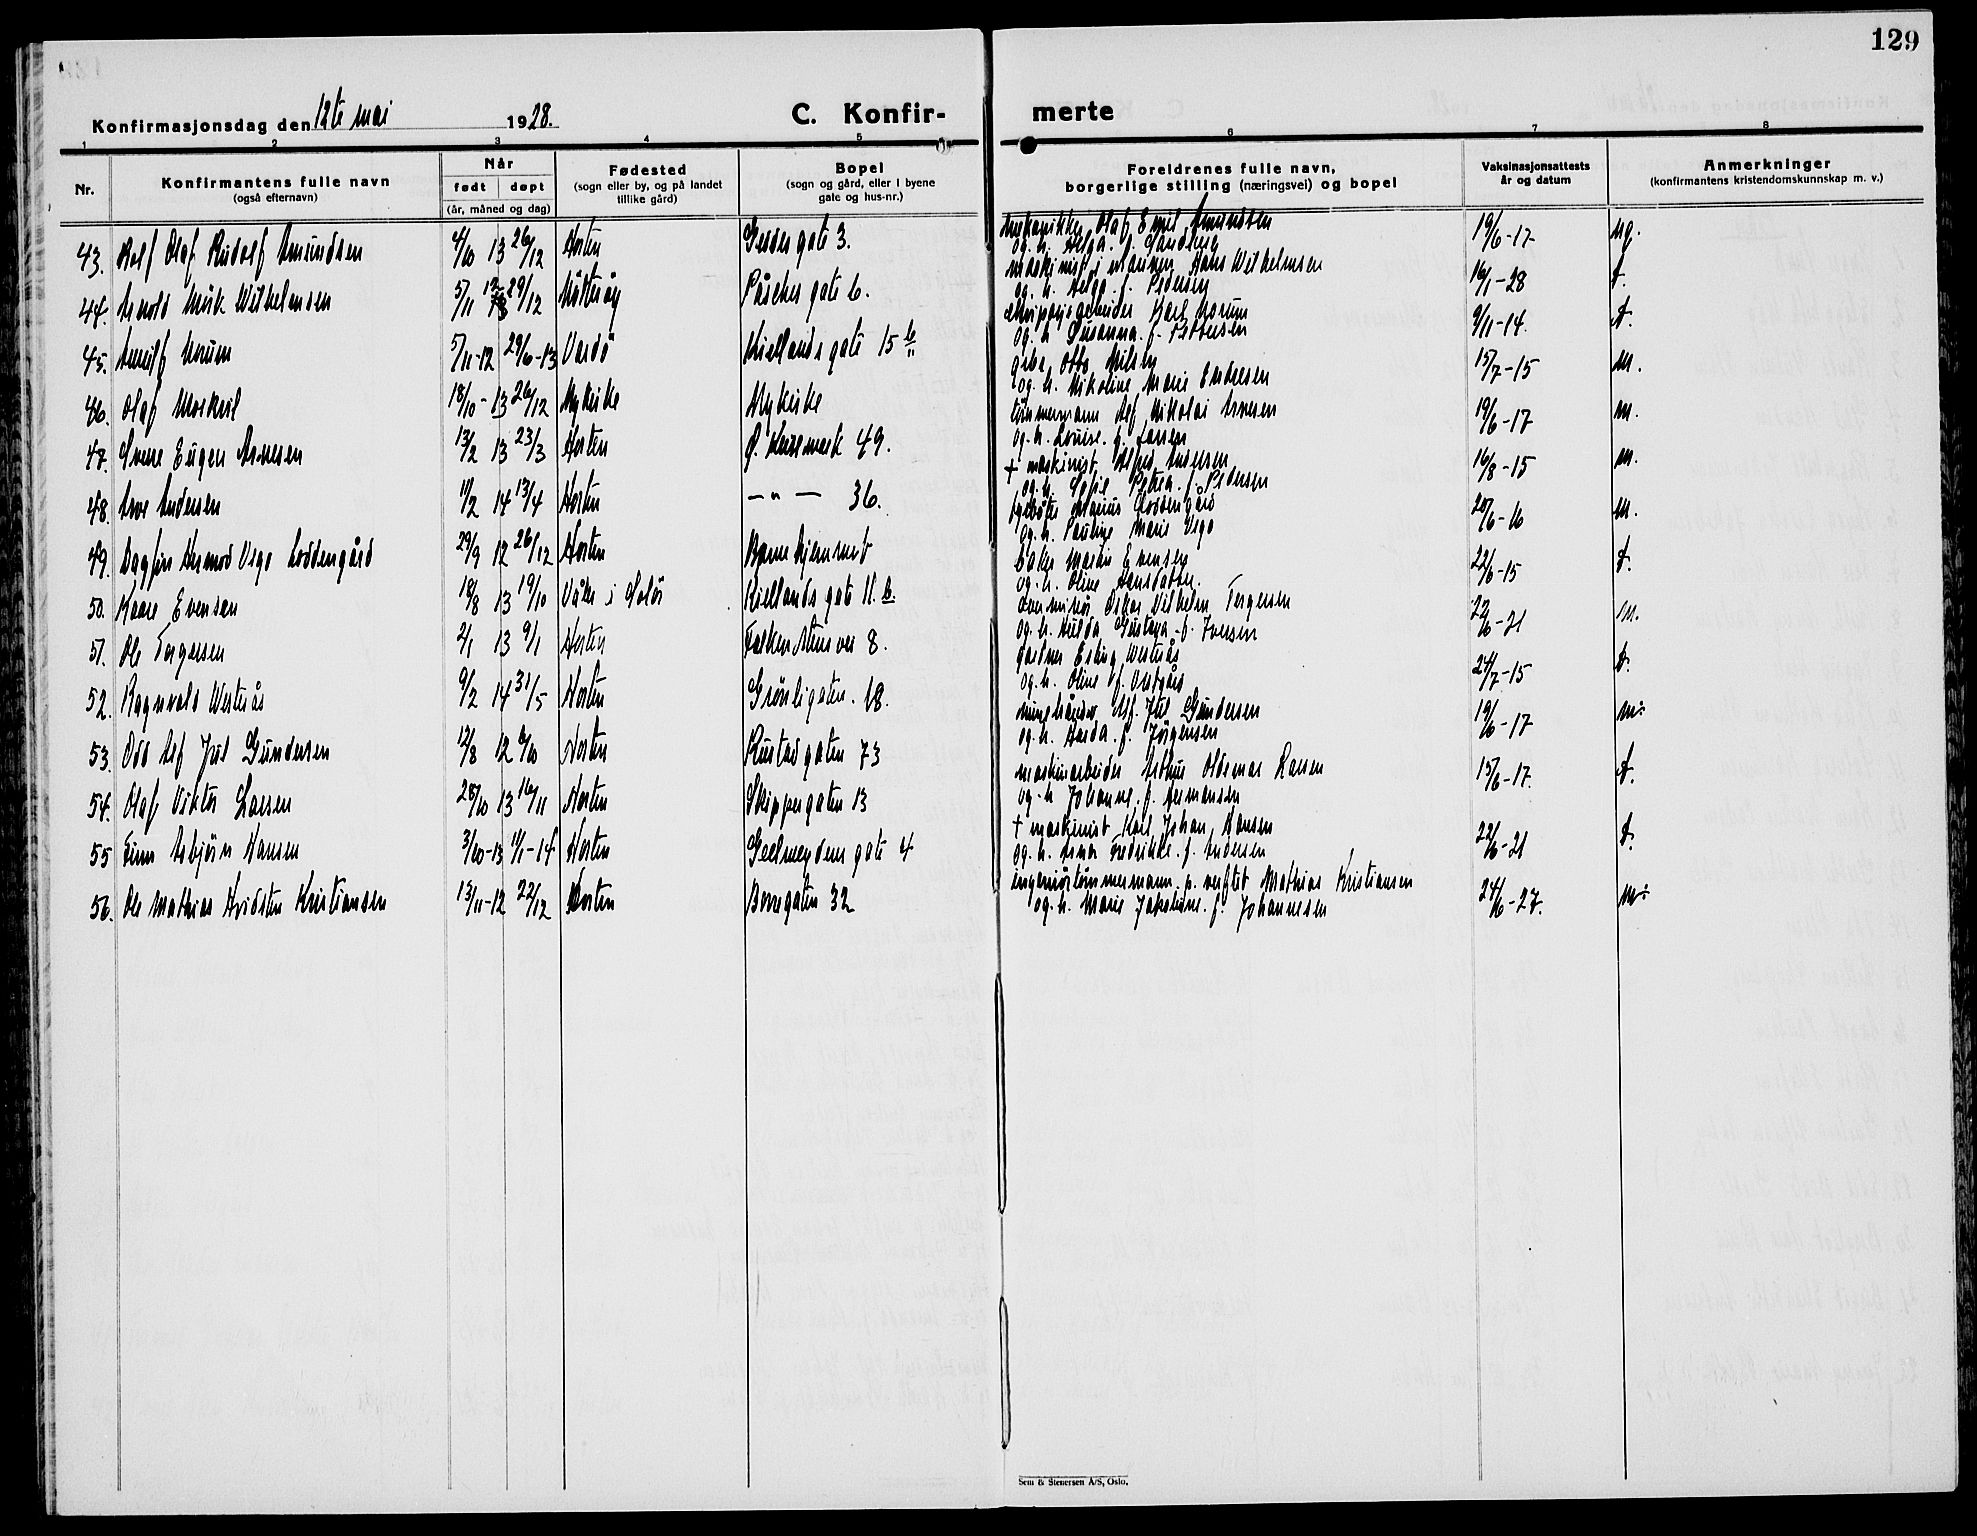 129
Konfirmasjonsdag den 12te mai 1928. C. Konfir- merte
1 2 3 4 5 6 7 8
Nr. Konfirmantens fulle navn (også efternavn) Når født døpt (år, måned og dag) Fødested (sogn eller by, og på landet tillike gård) Bopel (sogn og gård, eller i byene gate og hus-nr.) Foreldrenes fulle navn, borgerlige stilling (næringsvei) og bopel Vaksinasjonsattests år og datum Anmerkninger (konfirmantens kristendomskunnskap m. v.)
43. Rolf Olaf Rudolf Amundsen 4/10 13 26/12 Horten gate 3. mekanikker Olaf Emil Amundsen 19/6-17 mg.
og h. Helga f. Sandberg
44. Arnold Wilhelmsen 5/11 12 29/12 Nøtterøy gate 6. maskinist i marinen Hans Wilhelmsen 16/1-28 t.
og h. Helga f. Pedersen
45. 5/11-12 29/6-13 Vardö Kiellands gate 15 b Karl 9/11-14. t.
og h. Susanna f. Pettersen
46. Olaf 18/10-13 26/12 Nykirke Nykirke Otto Nilsen 15/7-15 m.
og h. Nikoline Marie Endresen
47. Sverre Eugen Arnesen 13/2 13 23/3 Horten Ø. 49. tømmermann Alf Nikolai Arnesen 19/6-17 m.
og h. Louise f. Larsen
48. Arve Andersen 11/2 14 13/4 Horten — " — 36. + maskinist Alfred Andersen 16/8-15 m.
og h. Petrea f. Pedersen
49. Dagfin Loddengård 29/9 12 26/12 Horten Barnehjemmet Marius Loddengård 20/6-16 m.
og h. Pauline Marie
50. Kaare Evensen 18/8 13 19/10 Våler i Solör Kiellands gate 11. b. baker Martin Evensen 22/6-15 t.
og h. Oline Hansdatter.
51. Ole Torgersen 2/1 13 9/1 Horten 8. overminør Oskar Wilhelm Torgersen 22/6-21 m.
og h. Hulda Gustava f. Iversen
52. Ragnvald Westerås 9/2 14 31/5 Horten Grønligaten. 18. gartner Westerås 24/7-15 t.
og h. Oline f.
53. Odd Alf Jul Gundersen 12/8 12 6/10 Horten Rustadgaten 73 Alf. Jul Gundersen 19/6-17 m.
og h. f. Jörgensen
54. Olaf Viktor Larsen 28/10 13 16/11 Horten Skippergaten 13 maskinarbeider Arthur Oldemar Larsen 15/6-17. t.
og h. Johanne f. Hermansen
55 Finn Asbjörn Hansen 3/10-13 11/1-14 Horten Geelmeydens gate 4 + maskinist Karl Johan Hansen 22/6-21 t.
og h. Anna Fredrikke f. Andersen
56. Ole Mathias Kristiansen 13/11-12 22/12 Horten Borregaten 32 tömmermann p. verftet Mathias Kristiansen 24/6-27. m.
og h. Marie Jakobine f. Johannesen
Sem & Stenersen A/S, Oslo.